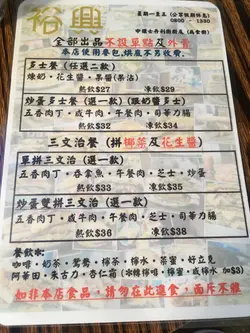 裕興
星期一至五 (公眾假期休息)
0800 - 1530
中環士丹利街街尾 (爲食街)
全部出品不設單點及外賣
本店使用卷包,烘底不另收費.
多士餐 (任選二款)
煉奶・花生醬・果醬(果占)
熱飲$27 凍飲$29
炒蛋多士餐 (選一款) (跟奶醬多士)
五香肉丁・咸牛肉・午餐肉・芝士・司華力腸
熱飲$32 凍飲$34
三文治餐 (拼椰菜及花生醬)
單拼三文治 (選一款)
五香肉丁・吞拿魚・午餐肉・芝士・炒蛋
熱飲$33 凍飲$35
炒蛋雙拼三文治 (選一款)
五香肉丁・咸牛肉・午餐肉・芝士・司華力腸
熱飲$36 凍飲$38
餐飲*:
咖啡・奶茶・鴛鴦・檸茶・檸水・茶蜜・好立克
阿華田・朱古力・杏仁霜 (*轉檸啡、檸蜜、或檸水 加$3)
如非本店食品,請勿在此進食,面斥不雅